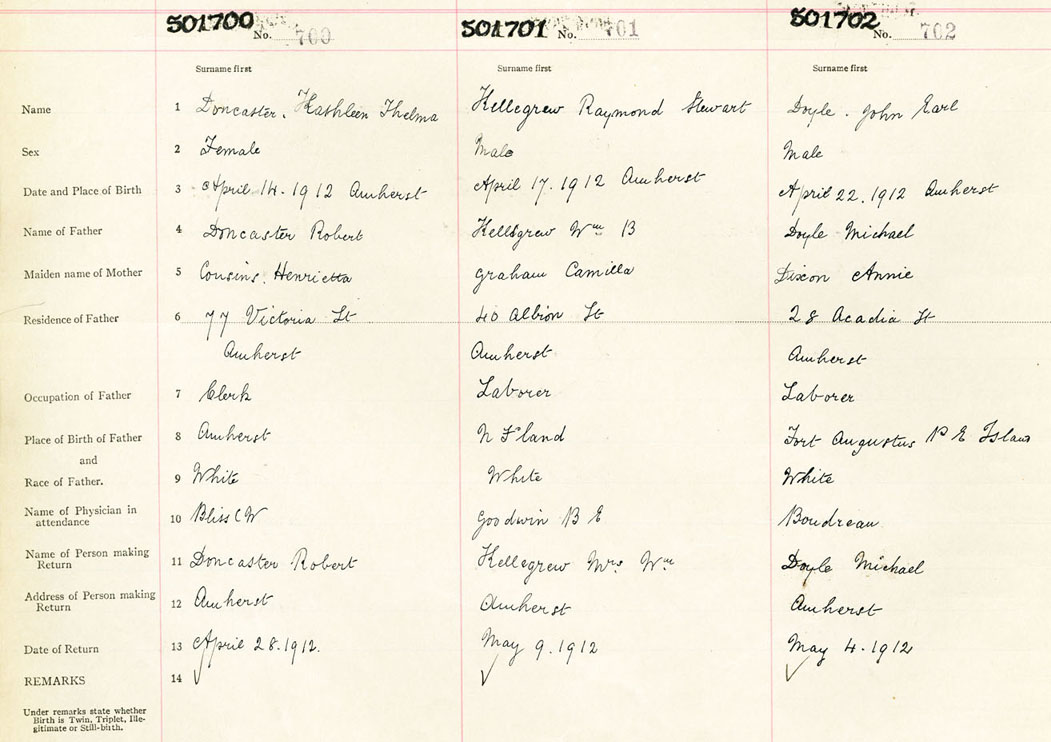 501700 No. 700 501701 No. 701 501702 No. 702
Surname first Surname first Surname first
Name 1 Doncaster, Kathleen Thelma Kellegrew Raymond Stewart Doyle. John Earl
Sex 2 Female Male Male
Date and Place of Birth 3 April 14. 1912 Amherst April 17. 1912 Amherst April 22. 1912 Amherst
Name of Father 4 Doncaster Robert Kellegrew Wm B Doyle Michael
Maiden name of Mother 5 Cousins. Henrietta Graham Camilla Dixon Annie
Residence of Father 6 77 Victoria St 40 Albion St 28 Acadia St
Amherst Amherst Amherst
Occupation of Father 7 Clerk Laborer Laborer
Place of Birth of Father 8 Amherst N F'land Fort Augustus P E Island
and
Race of Father. 9 White White White
Name of Physician in
attendance 10 Bliss C W Goodwin B E Boudreau
Name of Person making
Return 11 Doncaster Robert Kellegrew Mrs Wm Doyle Michael
Address of Person making
Return 12 Amherst Amherst Amherst
Date of Return 13 April 28. 1912. May 9. 1912 May 4. 1912
REMARKS 14 ✓ ✓ ✓
Under remarks state whether
Birth is Twin, Triplet, Ille-
gitimate or Still-birth.